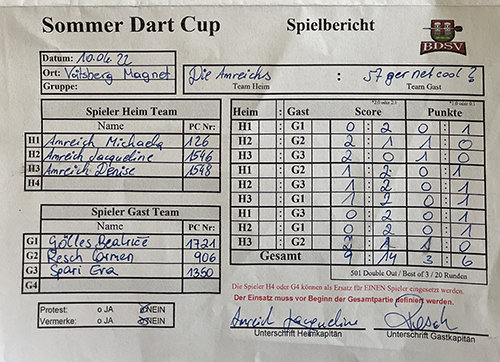 Sommer Dart Cup Spielbericht
BDSV
Datum: 10.06.22
Ort: Voitsberg Magnet
Gruppe:
Die Amreichs : 57ger net cool?
Team Heim Team Gast
Spieler Heim Team
Name PC Nr:
H1 Amreich Michaela 126
H2 Amreich Jacqueline 1546
H3 Amreich Denise 1548
H4
Spieler Gast Team
Name PC Nr:
G1 Gölles Beatrice 1721
G2 Resch Carmen 906
G3 Spari Eva 1350
G4
Protest: o JA o NEIN
Vermerke: o JA o NEIN
Heim : Gast Score Punkte
*2:0 oder 2:1 *1:0 oder 0:1
H1 : G1 0 : 2 0 : 1
H2 : G2 2 : 1 1 : 0
H3 : G3 2 : 0 1 : 0
H1 : G2 1 : 2 0 : 1
H2 : G3 1 : 2 0 : 1
H3 : G1 1 : 2 0 : 1
H1 : G3 0 : 2 0 : 1
H2 : G1 0 : 2 0 : 1
H3 : G2 2 : 1 1 : 0
Gesamt 9 : 14 3 : 6
501 Double Out / Best of 3 / 20 Runden
Die Spieler H4 oder G4 können als Ersatz für EINEN Spieler eingesetzt werden.
Der Einsatz muss vor Beginn der Gesamtpartie definiert werden.
Amreich Jacqueline Resch
Unterschrift Heimkapitän Unterschrift Gastkapitän